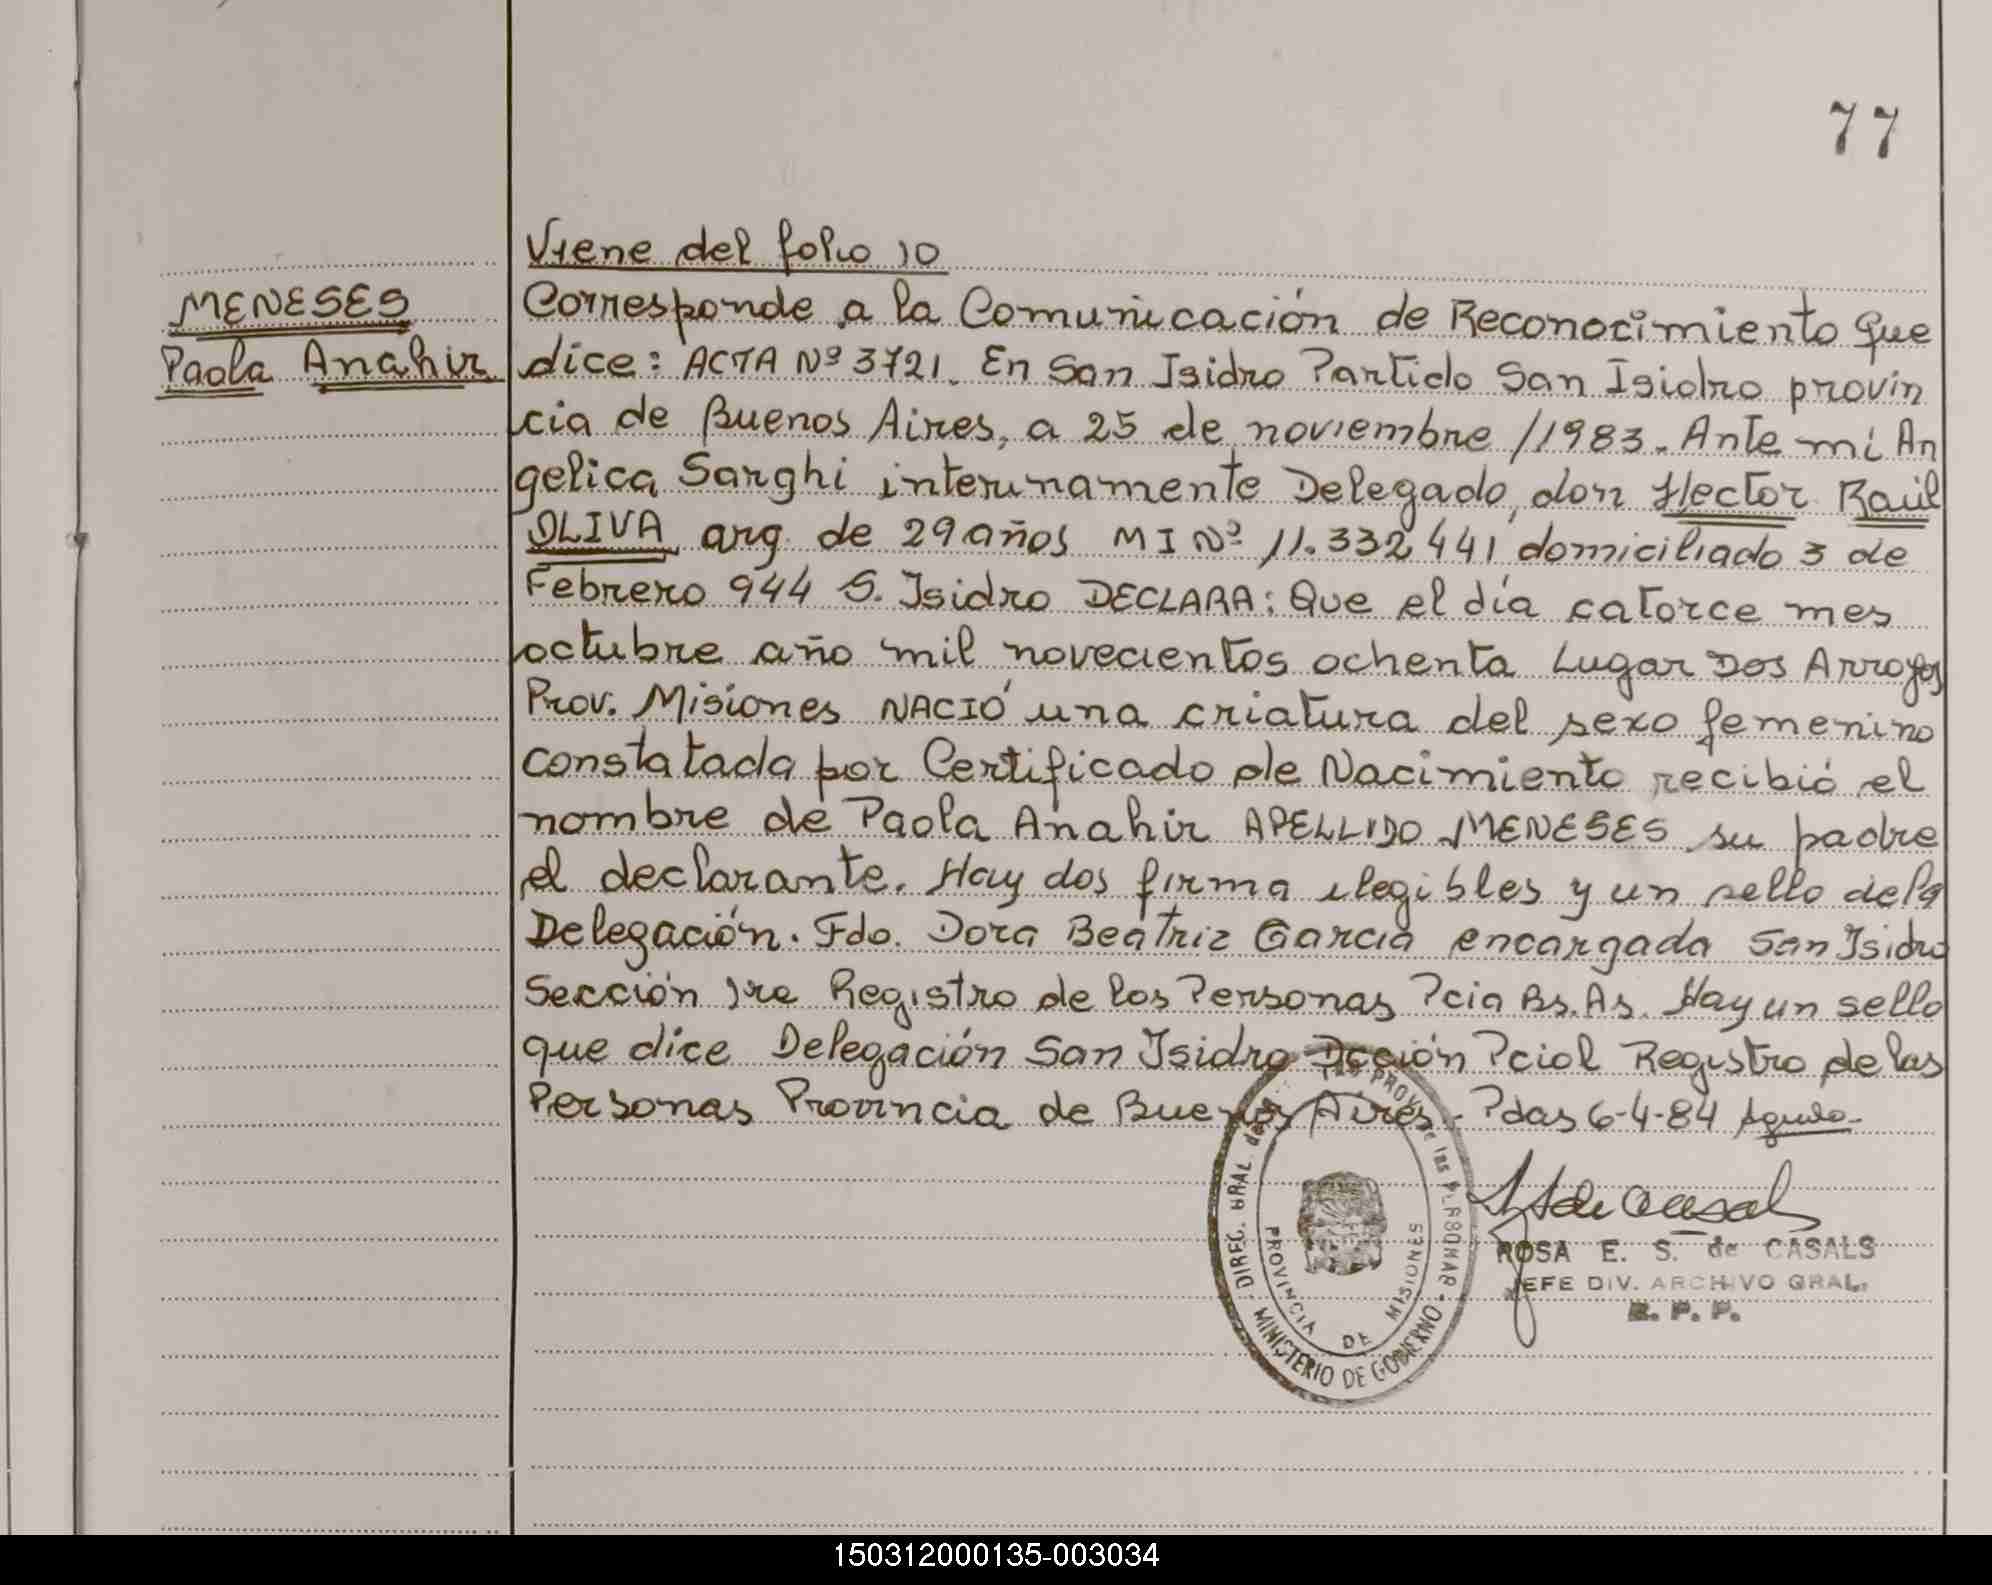 77
Viene del folio 10
MENESES
Paola Anahir
Corresponde a la Comunicación de Reconocimiento que
dice: ACTA Nº 3721. En San Isidro Partido San Isidro provin
cia de Buenos Aires, a 25 de noviembre /1983. Ante mí An
gelica Sarghi interinamente Delegado, don Hector Raúl
OLIVA arg. de 29 años M I Nº 11.332.441 domiciliado 3 de
Febrero 944 S. Isidro DECLARA: Que el día catorce mes
octubre año mil novecientos ochenta Lugar Dos Arroyos
Prov. Misiones NACIÓ una criatura del sexo femenino
constatada por Certificado de Nacimiento recibió el
nombre de Paola Anahir APELLIDO MENESES su padre
el declarante. Hay dos firma ilegibles y un sello de la
Delegación. Fdo. Dora Beatriz Garcia encargada San Isidro
Sección 1ra Registro de los Personas Pcia Bs. As. Hay un sello
que dice Delegación San Isidro Dcción Pcial Registro de las
Personas Provincia de Buenos Aires. Pdas 6-4-84
DIREC. GRAL. de PROV. de las PERSONAS
MINISTERIO DE GOBIERNO
PROVINCIA DE MISIONES
ROSA E. S. de CASALS
JEFE DIV. ARCHIVO GRAL.
R. P. P.
150312000135-003034